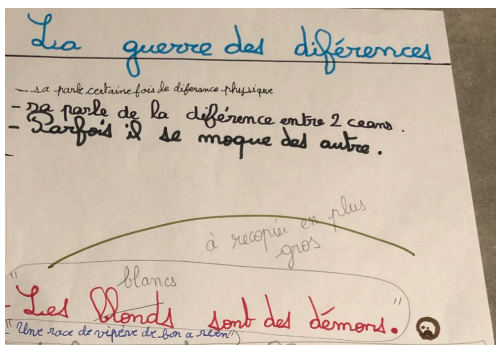 La guerre des diférences
- sa parle certaine fois de diferance physique
- sa parle de la diférence entre 2 ceams.
- Parfois il se moque des autre.
-
à recopier en plus
gros
blancs
- "Les blonds sont des démons."
("Une race de vipère de bon a rien")